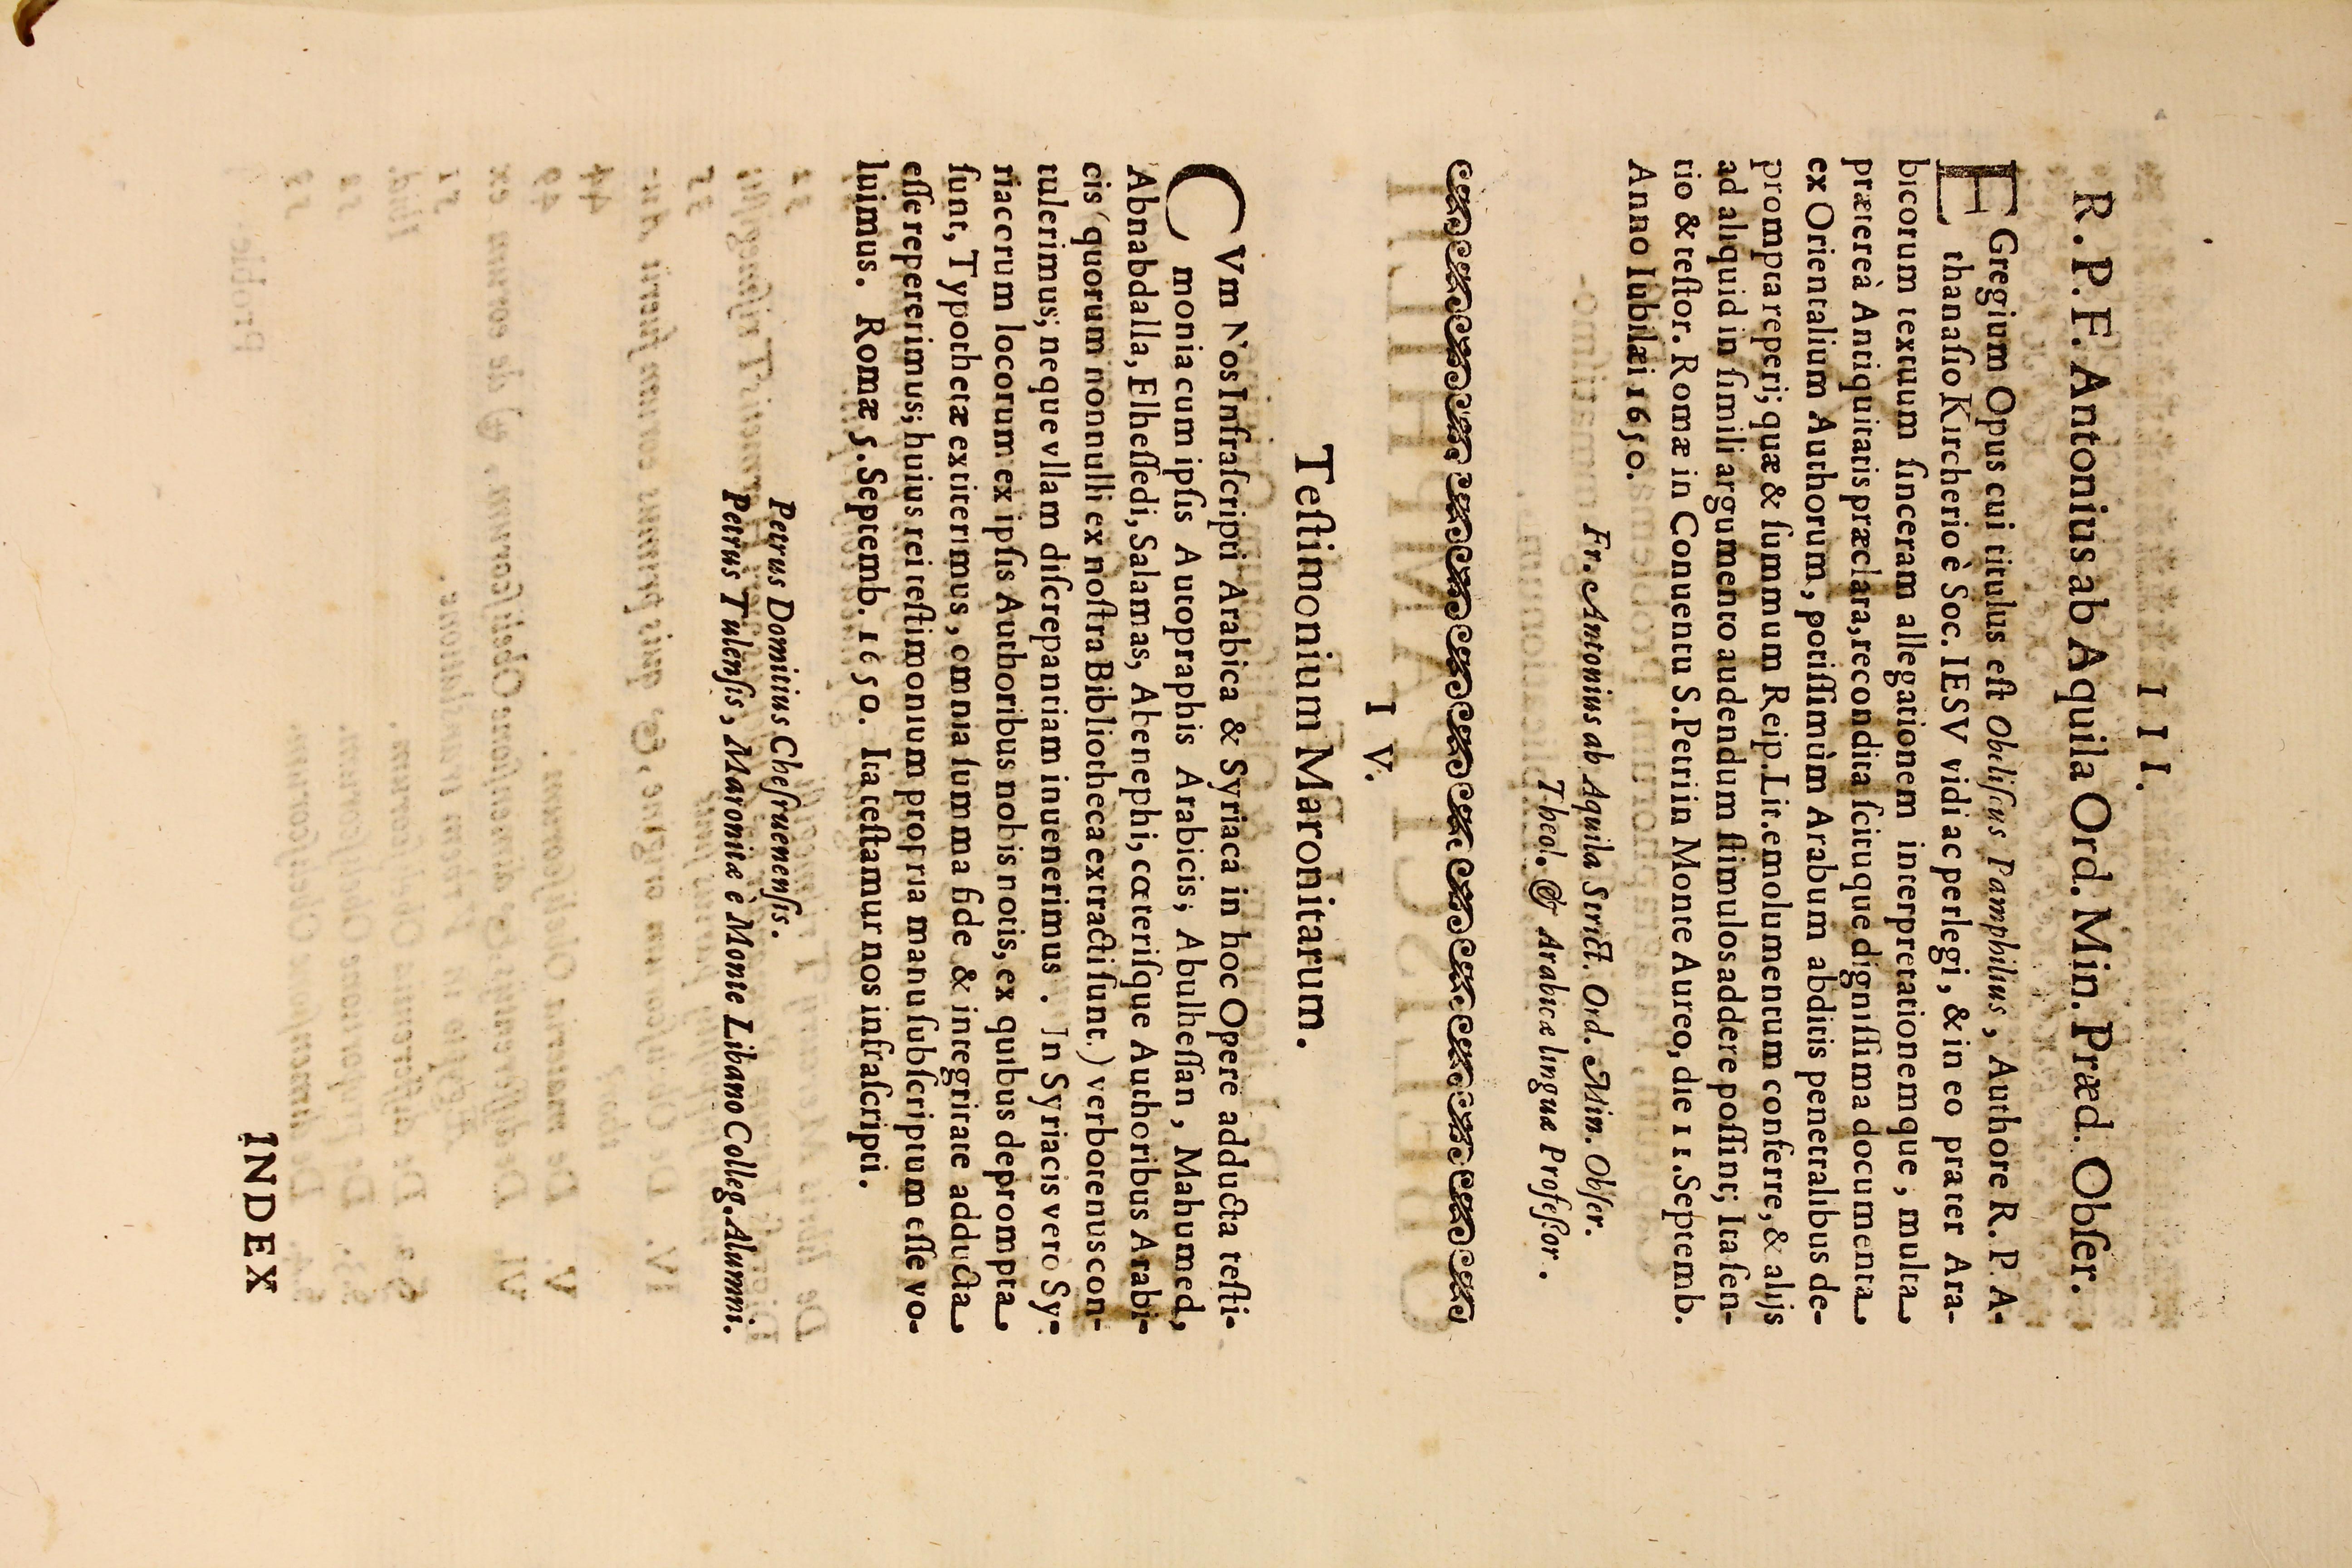 I I.
R. P. F. Antonius ab Aquila Ord. Min. Præd. Obſer.
EGregium Opus cui titulus eſt Obeliſcus Pamphilius, Authore R. P. A-
thanaſio Kircherio è Soc. IESV vidi ac perlegi, & in eo præter Ara-
bicorum textuum ſinceram allegationem interpretationemque, multa
prætereà Antiquitatis præclara, recondita ſcituque digniſſima documenta
ex Orientalium Authorum, potiſſimùm Arabum abditis penetralibus de-
prompta reperi; quæ & ſummum Reip. Lit. emolumentum conferre, & alijs
ad aliquid in ſimili argumento audendum ſtimulos addere poſſint; Ita ſen-
tio & teſtor. Romæ in Conuentu S. Petri in Monte Aureo, die 11. Septemb.
Anno Iubilæi 1650.
Fr. Antonius ab Aquila Strict. Ord. Min. Obſer.
Theol. & Arabicæ lingua Profeſſor.
I V.
Teſtimonium Maronitarum.
CVm Nos Infraſcripti Arabica & Syriaca in hoc Opere adducta teſti-
monia cum ipſis Autopraphis Arabicis; Abulheſſan, Mahumed,
Abnabdalla, Elheſſedi, Salamas, Abenephi, cœteriſque Authoribus Arabi-
cis (quorum nonnulli ex noſtra Bibliotheca extracti ſunt.) verbotenus con-
tulerimus; neque vllam diſcrepantiam inuenerimus. In Syriacis vero Sy-
riacorum locorum ex ipſis Authoribus nobis notis, ex quibus deprompta
ſunt, Typothetæ extiterimus, omnia ſumma fide & integritate adducta
eſſe repererimus; huius rei teſtimonium propria manu ſubſcriptum eſſe vo-
luimus. Romæ 5. Septemb. 1650. Ita teſtamur nos infraſcripti.
Petrus Domitius Cheſruenenſis.
Petrus Tulenſis, Maronitæ è Monte Libano Colleg. Alumni.
INDEX